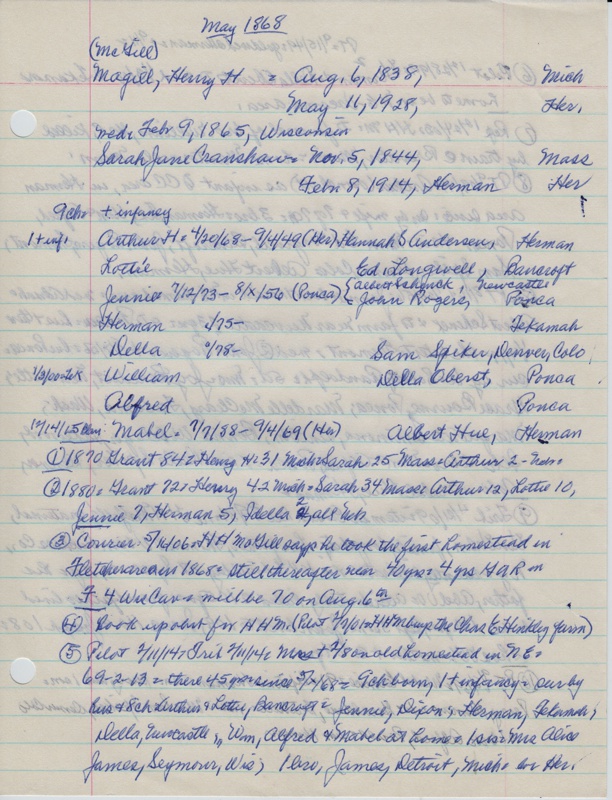 May 1868
(McGill)
Magill, Henry H = Aug. 6, 1838, Mich
May 11, 1928, Her.
wed: Feb. 9, 1865, Wisconsin
Sarah Jane Cranshaw = Nov. 5, 1844, Mass
Feb. 8, 1914, Herman Her
9 ch = + infancy
1 + inf. Arthur H = 4/20/68 - 9/4/49 (Her) Hannah S Andersen, Herman
Lottie Ed. Longwell, Bancroft
Jennie 7/12/73 - 8/x/56 (Ponca) { Albert Schenck, Newcastle
John Rogers, Ponca
Herman c/75 - Tekamah
Della c/78 - Sam Spiker, Denver, Colo.
William Della Oberst, Ponca
Alfred Ponca
Mabel = 7/7/88 - 9/4/69 (Her) Albert Hue, Herman
① 1870 Grant 84 = Henry H 31 Mich = Sarah 25 Mass = Arthur 2 - Neb =
② 1880 = Grant 72 = Henry 42 Mich = Sarah 34 Mass = Arthur 12, Lottie 10,
Jennie 7, Herman 5, Idella 2, all Neb
③ Courier = 5/11/06 = H H McGill says he took the first homestead in
Fletcher area in 1868 = still there after near 40 yrs = 4 yrs GAR in
F. 4 Wis Cav = will be 70 on Aug. 6th
④ Book up obit for H H M. (Pilot 2/7/01 = H H M buys the Chas E Hinkley farm)
⑤ Pilot 2/11/14 = Trib 2/11/14 = 2/8 on old homestead in NE =
69-2-13 = there 45 yrs since 5/x/68 = 9 ch born, 1 + infancy = sur by
hus & 8 ch Arthur & Lottie, Bancroft = Jennie, Dixon & Herman, Tekamah;
Della, Newcastle, Wm, Alfred & Mabel at home = 1 sis: Mrs Alice
James, Seymour, Wis; 1 bro, James, Detroit, Mich = bur Her.